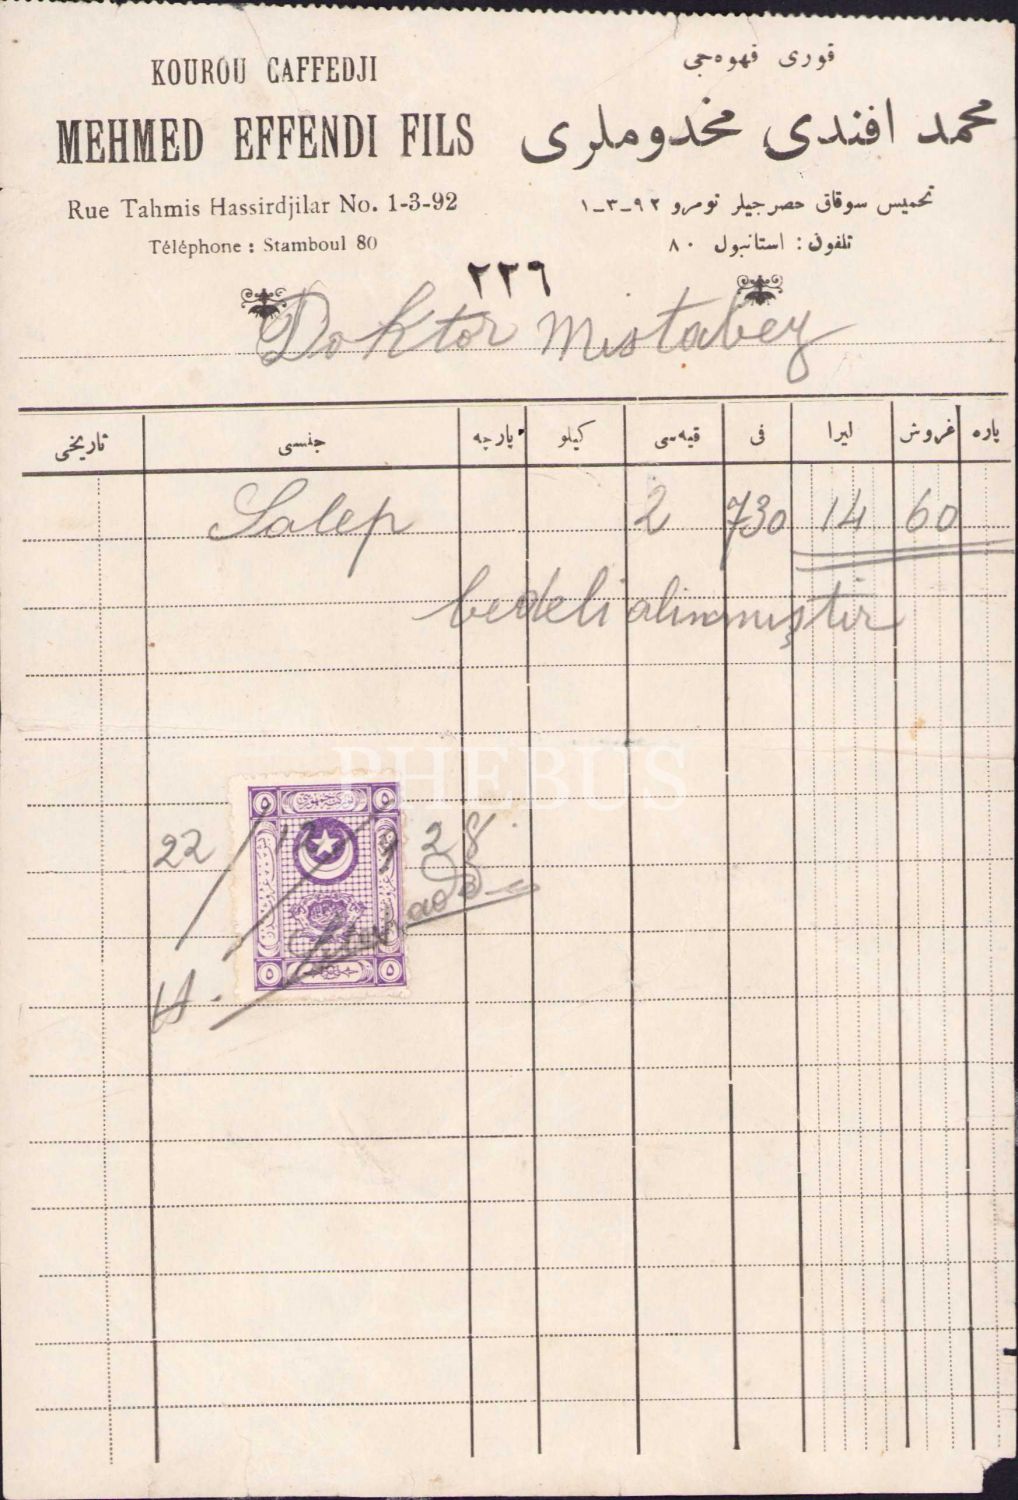 KOUROU CAFFEDJI
MEHMED EFFENDI FILS
Rue Tahmis Hassirdjilar No. 1-3-92
Téléphone : Stamboul 80
قوری قهوه‌جی
محمد افندی مخدوملری
تحمیس سوقاق حصرجیلر نومرو ٩٢-٣-١
تلفون : استانبول ٨٠
٢٢٦
Doktor Mistabey
تاریخی جنسی پارچه کیلو قیه‌سی فی لیرا غروش پاره
Salep 2 730 14 60
bedeli alinmıştır
PHEBUS
٥ ٥
22 / 12 / 928
٥ ٥